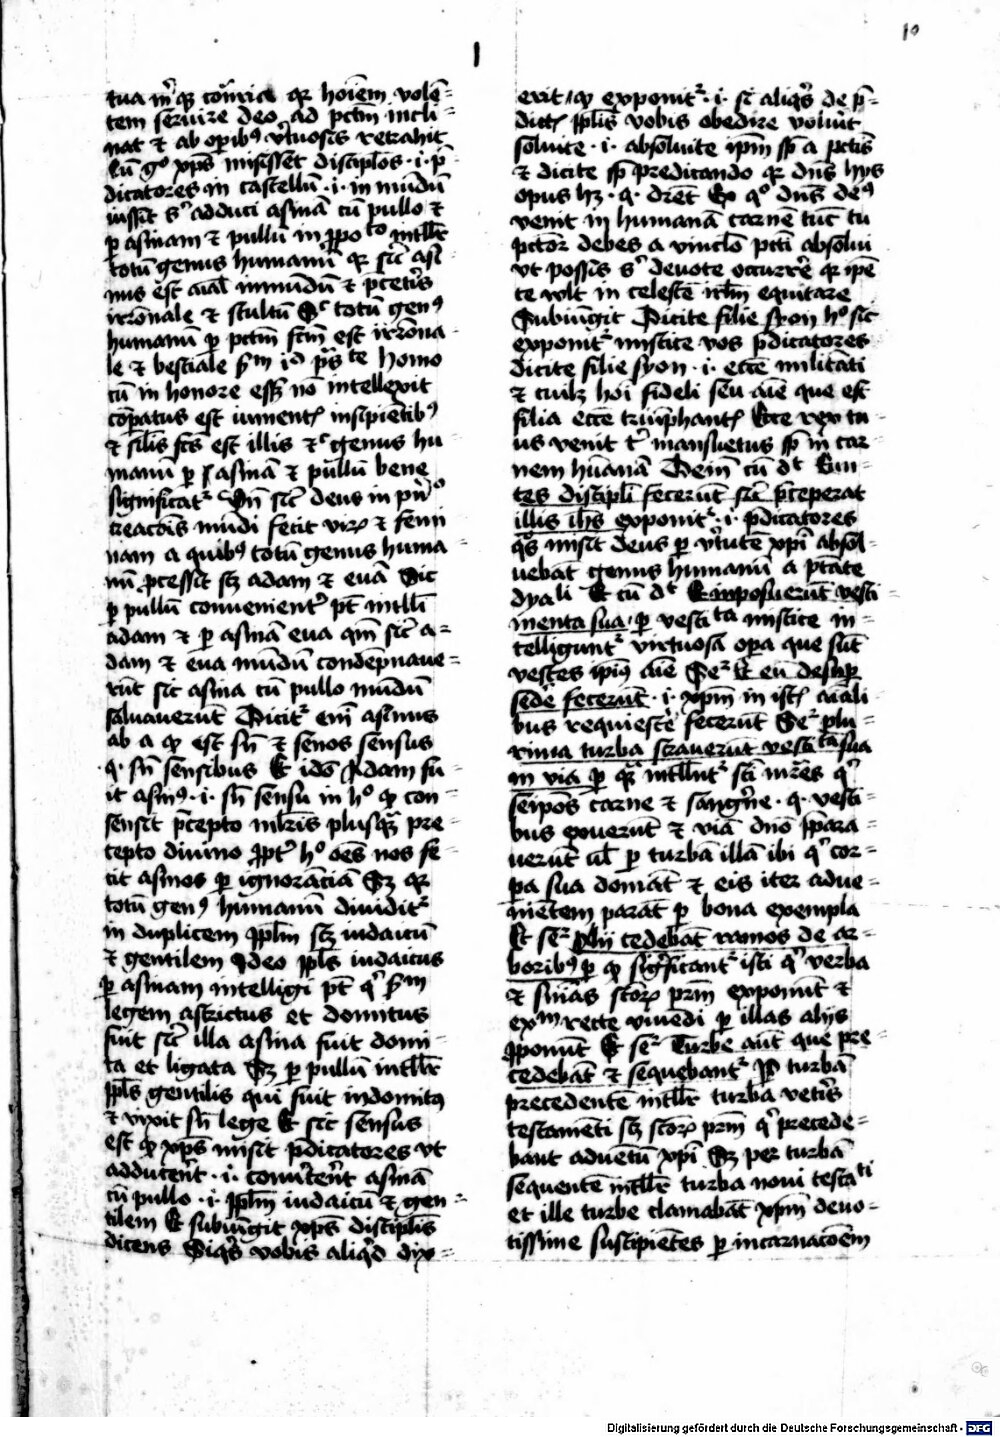 10
I
tua mr̄ qz cōmr̄ia qr hoīem volē=
tem seruire deo ad pctm̄ incli=
nat ⁊ ab opibꝰ vtuosis retrahit
Cū gͦ xp̄s misisset discip̄los ·i· p̄=
dicatores in castellū ·i· in mūdū
iussit sͨ adduci asinā cū pullo ⁊
ꝑ asinam ⁊ pullū in ꝓpoᵗᵒ intllr̄
totū genus humanū qr sic̄ asi=
nus est aīal inmūdū ⁊ pctris
irrōnale ⁊ stultū Sͨ totū genꝰ
humanū ꝑ pctm̄ fcm̄ est irrōna=
le ⁊ bestiale ẜm iᵈ p̄s te homo
cū in honore ess; nō intellexit
cōpatus est iumentꝭ insipiētibꝰ
⁊ sil̄is fcs̄ est illis ⁊ͨ genus hu=
manū ꝑ asinā ⁊ pullū bene
significatᷣ Vn̄ sic̄ deus in pn̄ͦ
creacōis mūdi fecit virꝝ ⁊ femi
nam a quibꝰ totū genus huma
nū ꝓcessit sꝫ adam ⁊ euā Sic
ꝑ pullū conuenientᷣ pt̄ intll̄i
adam ⁊ ꝑ asinā eua qm̄ sic̄ a=
dam ⁊ eua mūdū condēpnaue=
rūt sic asina cū pullo mūdū
saluauerūt Dicitᷣ em̄ asinus
ab a qͦ est sn̄ ⁊ senos sensus
·q· sn̄ sensibus Et idō Adam fu=
it asinꝰ ·i· sn̄ sensu in hͦ qͦ con=
sensit p̄cepto ml̄ris plusqᷓ pre=
cepto diuino ꝓptᷣ hͦ oēs nos fe=
cit asinos ꝑ ignorāciā Sꝫ qr
totū genꝰ humanū diuiditᷣ
in duplicem ꝓplm̄ sꝫ iudaicū
⁊ gentilem Ideo ꝓpl̄s iudaicus
ꝑ asinam intelligi pt̄ qͥ ẜm
legem astrictus et domitus
fuit sic̄ illa asina fuit domi=
ta et ligata Sꝫ ꝑ pullū intllr̄
ꝓpl̄s gentilis qui fuit indomitꝰ
⁊ vixit sn̄ lege Et sic sensus
est qͦ xp̄s misit p̄dicatores vt
adducerēt ·i· conuerterēt asinā
cū pullo ·i· ꝓplm̄ iudaicū ⁊ gen=
tilem Et subiūgit xp̄s discip̄lis
dicens Siqͥs vobis aliqͥd dix=
erit / qͦ exponitᷣ ·i· si aliqͥs de p̄=
dictꝭ ꝓpl̄is vobis obedire voluīt
soluite ·i· absoluite ip̄m sp̄ a pctis
⁊ dicite sp̄ predicando qr dn̄s hys
opus hꝫ ·q· drēt Ex qͦ dn̄s deꝰ
venit in humanā carnē tūc tu
pctōr debes a vinclō pcti absolui
vt possis sͥ deuote occurrē qr ip̄e
te vult in celestē irlm̄ equitare
Subiūgit Dicite filie syon hͦ sic
exponitᷣ mistice vos p̄dicatores
dicite filie syon ·i· eccē militāti
⁊ cuilꝫ hoī fideli seu aīe que est
filia eccē triūphantꝭ Ecce rex tu=
us venit tͥ mansuetus sp̄ in car=
nem hūanā Dein̄ cū dt̄ Eun=
tes discip̄li fecerūt sic̄ p̄ceperat
illis ih̄s exponitᷣ ·i· p̄dicatores
qͦs misit deus ꝑ vtutē xp̄i absol=
uebāt genus humanū a ptāte
dyali Et cū dt̄ Et inposuerūt vesti=
menta sua / ꝑ vestiᵗᵃ mistice in=
telliguntᷣ virtuosa oꝑa que sūt
vestes ip̄ius aīe Seᷣ Et eū desuꝑ
sede fecerūt ·i· xp̄m in istꝭ aīali
bus requiescē fecerūt Seᷣ plu=
rima turba strauerūt vestiᵗᵃ sua
in via ꝑ qᷓ intllnt̄ sc̄i mr̄es qͥ
seip̄os carne ⁊ sangūe ·q· vesti=
bus exuerūt ⁊ viā dn̄o p̄para=
uerūt ul̄ ꝑ turbā illā ibi qͥ cor=
ꝑa sua domāt ⁊ eis iter adue=
niētem parāt ꝑ bona exempla
Et seᷣ Alij cedebāt ramos de ar=
boribꝰ ꝑ qͦ significantᷣ isti qͥ verba
⁊ sn̄ias sctōrꝝ prm̄ exponūt ⁊
exᵐ recte viuēdi ꝑ illas alijs
ꝓponūt Et seᷣ Turbe aūt que pre=
cedebāt ⁊ sequebantᷣ Ꝑ turbā
precedentē intllr̄ turba vetis̄
testamēti sꝫ sctōrꝝ prm̄ qͥ precede=
bant aduētū xp̄i Sꝫ per turbā
sequentē intllr̄ turba noui testaᵗⁱ
et ille turbe clamabāt xp̄m deuo=
tissime suscipiētes ꝑ incarnacōem
Digitalisierung gefördert durch die Deutsche Forschungsgemeinschaft - DFG